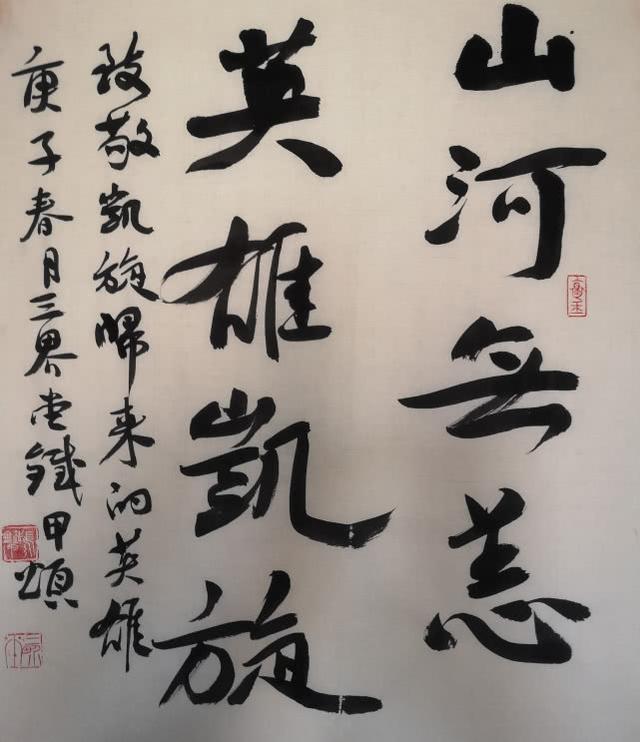 山河無恙
英雄凱旋
致敬凱旋歸来的英雄
庚子春月三界堂鐵甲頌